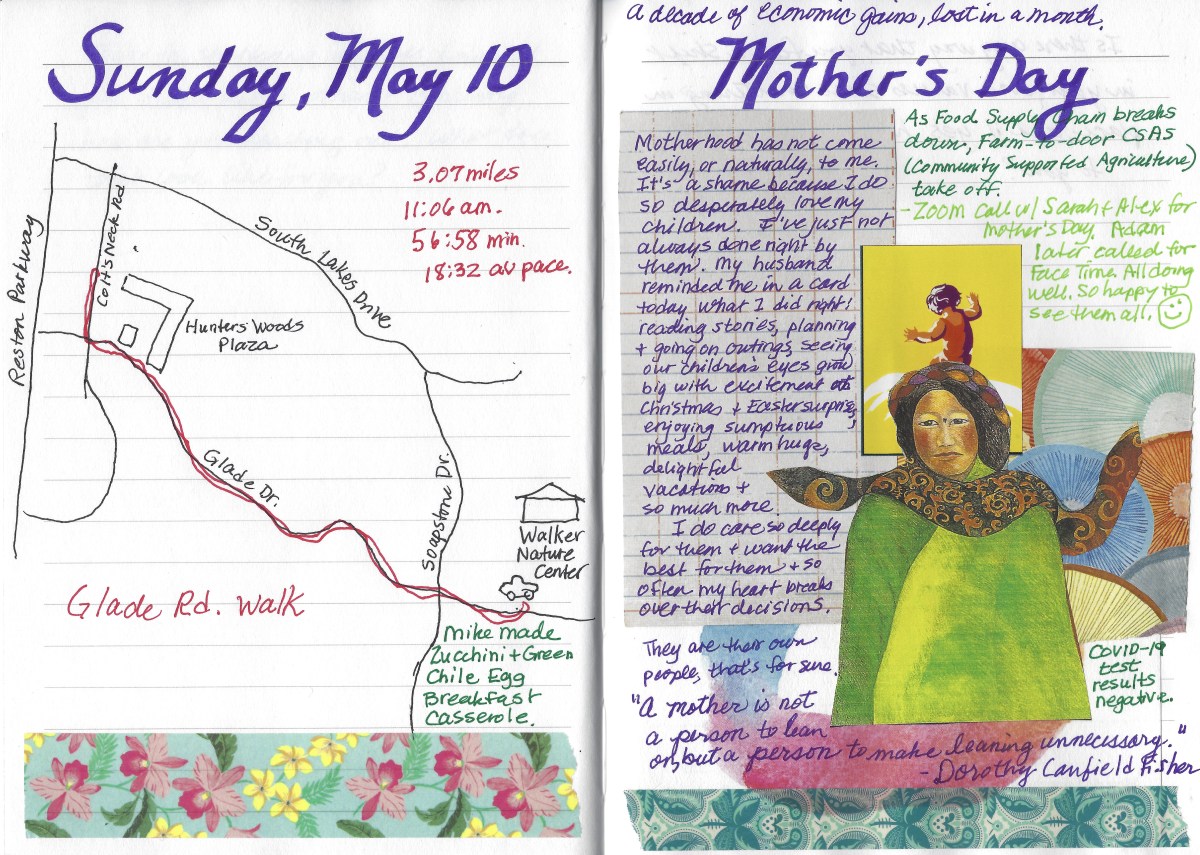 Sunday, May 10
3.07 miles
11:06 am.
56:58 min.
18:32 av pace.
Reston Parkway
Colt's Neck Rd
South Lakes Drive
Hunters Woods
Plaza
Glade Dr.
Soapstone Dr.
Walker
Nature
Center
Glade Rd. Walk
Mike made
Zucchini + Green
Chile Egg
Breakfast
Casserole.
a decade of economic gains, lost in a month.
Mother's Day
Motherhood has not come
easily, or naturally, to me.
It's a shame because I do
so desperately love my
children. I've just not
always done right by
them. My husband
reminded me in a card
today what I did right!
reading stories, planning
+ going on outings, seeing
our children's eyes grow
big with excitement at
Christmas + Easter surprises,
enjoying sumptuous
meals, warm hugs,
delightful
vacations +
so much more.
I do care so deeply
for them + want the
best for them + so
often my heart breaks
over their decisions.
They are their own
people, that's for sure.
"A mother is not
a person to lean
on, but a person to make leaning unnecessary."
- Dorothy Canfield Fisher
As Food Supply Chain breaks
down, Farm-to-door CSAs
(Community Supported Agriculture)
take off.
- Zoom call w/ Sarah + Alex for
Mother's Day. Adam
later called for
Face Time. All doing
well. So happy to
see them all.
COVID-19
test
results
negative.